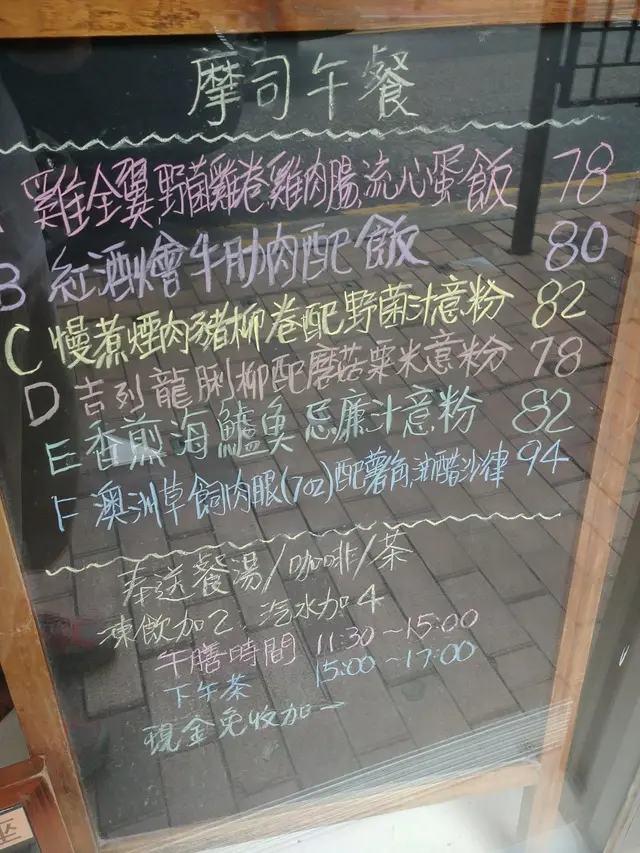 摩司午餐
A 雞全翼野菌雞卷雞肉腸流心蛋飯 78
B 紅酒燴牛肋肉配飯 80
C 慢煮煙肉豬柳卷配野菌汁意粉 82
D 吉列龍脷柳配蘑菇粟米意粉 78
E 香煎海鱸魚忌廉汁意粉 82
F 澳洲草飼肉眼(7oz)配薯角,油醋沙律 94
奉送餐湯/咖啡/茶
凍飲加2, 汽水加4
午膳時間 11:30~15:00
下午茶 15:00~17:00
現金免收加一
座